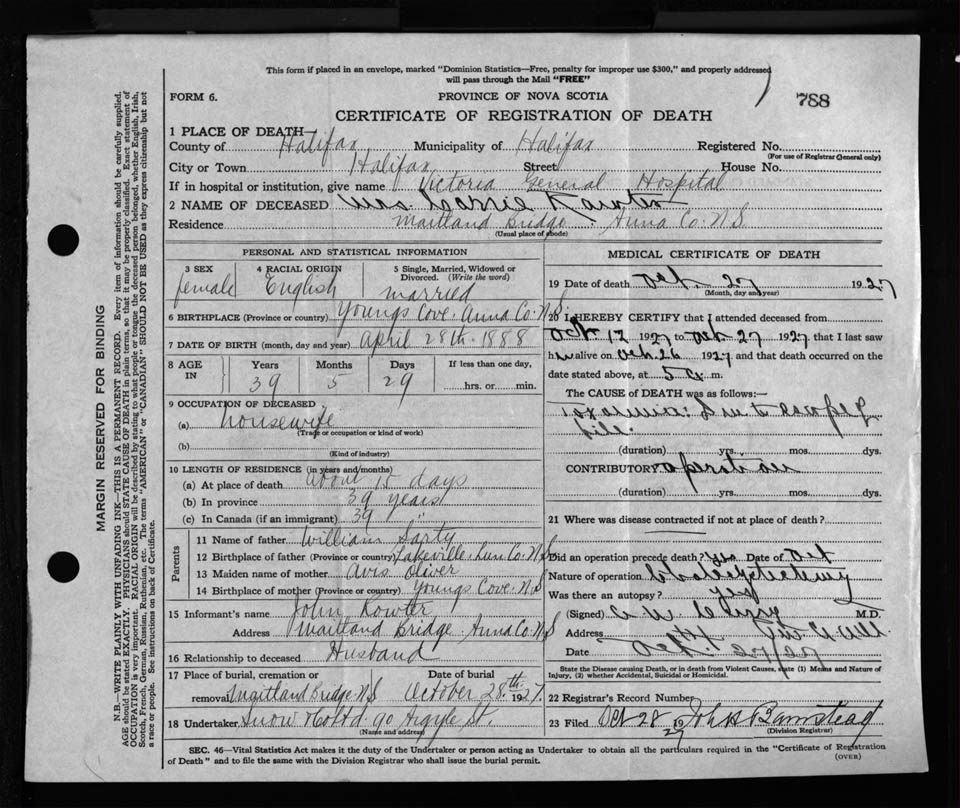 This form if placed in an envelope, marked "Dominion Statistics—Free, penalty for improper use $300," and properly addressed
will pass through the Mail "FREE"
FORM 6.
PROVINCE OF NOVA SCOTIA
788
CERTIFICATE OF REGISTRATION OF DEATH
1 PLACE OF DEATH—
County of Halifax Municipality of Halifax Registered No.
(For use of Registrar General only)
City or Town Halifax Street House No.
If in hospital or institution, give name Victoria General Hospital
2 NAME OF DECEASED Mrs. Cassie Rowter
Residence Maitland Bridge Anna Co. N.S.
(Usual place of abode)
PERSONAL AND STATISTICAL INFORMATION
3 SEX
female
4 RACIAL ORIGIN
English
5 Single, Married, Widowed or
Divorced. (Write the word)
married
6 BIRTHPLACE (Province or country) Youngs Cove. Anna Co. N.S.
7 DATE OF BIRTH (month, day and year) April 28th. 1888
8 AGE
IN
Years
39
Months
5
Days
29
If less than one day,
hrs. or min.
9 OCCUPATION OF DECEASED
(a) housewife
(Trade or occupation or kind of work)
(b)
(Kind of industry)
10 LENGTH OF RESIDENCE (in years and months)
(a) At place of death about 15 days
(b) In province 39 years
(c) In Canada (if an immigrant) 39 "
Parents
11 Name of father William Sarty
12 Birthplace of father (Province or country) Lakeville. Lun Co. N.S
13 Maiden name of mother Avis Oliver
14 Birthplace of mother (Province or country) Youngs Cove. N.S
15 Informant's name John Rowter
Address Maitland Bridge. Anna Co. N.S
16 Relationship to deceased Husband
17 Place of burial, cremation or
removal Maitland Bridge N.S
Date of burial
October 28.th 1927.
18 Undertaker Snow & Co Ltd. 90 Argyle St.
(Name and address)
MEDICAL CERTIFICATE OF DEATH
19 Date of death Oct. 27 1927
(Month, day and year)
20 I HEREBY CERTIFY that I attended deceased from
Oct. 12 1927 to Oct. 27 1927 that I last saw
h alive on Oct. 26 1927, and that death occurred on the
date stated above, at 5 a.m.
The CAUSE OF DEATH was as follows:—
Toxaemia:
(duration) yrs. mos. dys.
CONTRIBUTORY operation
(duration) yrs. mos. dys.
21 Where was disease contracted if not at place of death?
Did an operation precede death? yes Date of Oct
Nature of operation
Was there an autopsy? yes
(Signed) M.D.
Address
Date
State the Disease causing Death, or in death from Violent Causes, state (1) Means and Nature of
Injury, (2) whether Accidental, Suicidal or Homicidal.
22 Registrar's Record Number
23 Filed Oct 28 1927 John Barnstead
(Division Registrar)
SEC. 46—Vital Statistics Act makes it the duty of the Undertaker or person acting as Undertaker to obtain all the particulars required in the "Certificate of Registration
of Death" and to file the same with the Division Registrar who shall issue the burial permit.
(OVER)
MARGIN RESERVED FOR BINDING
N.B.—WRITE PLAINLY WITH UNFADING INK—THIS IS A PERMANENT RECORD. Every item of information should be carefully supplied.
AGE should be stated EXACTLY. PHYSICIANS should STATE CAUSE OF DEATH in plain terms, so that it may be properly classified. Exact statement of
OCCUPATION is very important. RACIAL ORIGIN will be described by stating to what people or tongue the deceased person belonged, whether English, Irish,
Scotch, French, German, Russian, Ruthenian, etc. The terms "AMERICAN" or "CANADIAN" SHOULD NOT BE USED as they express citizenship but not
a race or people. See instructions on back of Certificate.